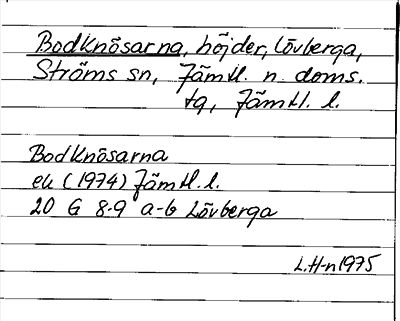 Bodknösarna, höjder, Lövberga,
Ströms sn, Jämtl. n. doms.
tg, Jämtl. l.
Bodknösarna
ek (1974) Jämtl. l.
20 G 8-9 a-b Lövberga
L.H-n 1975